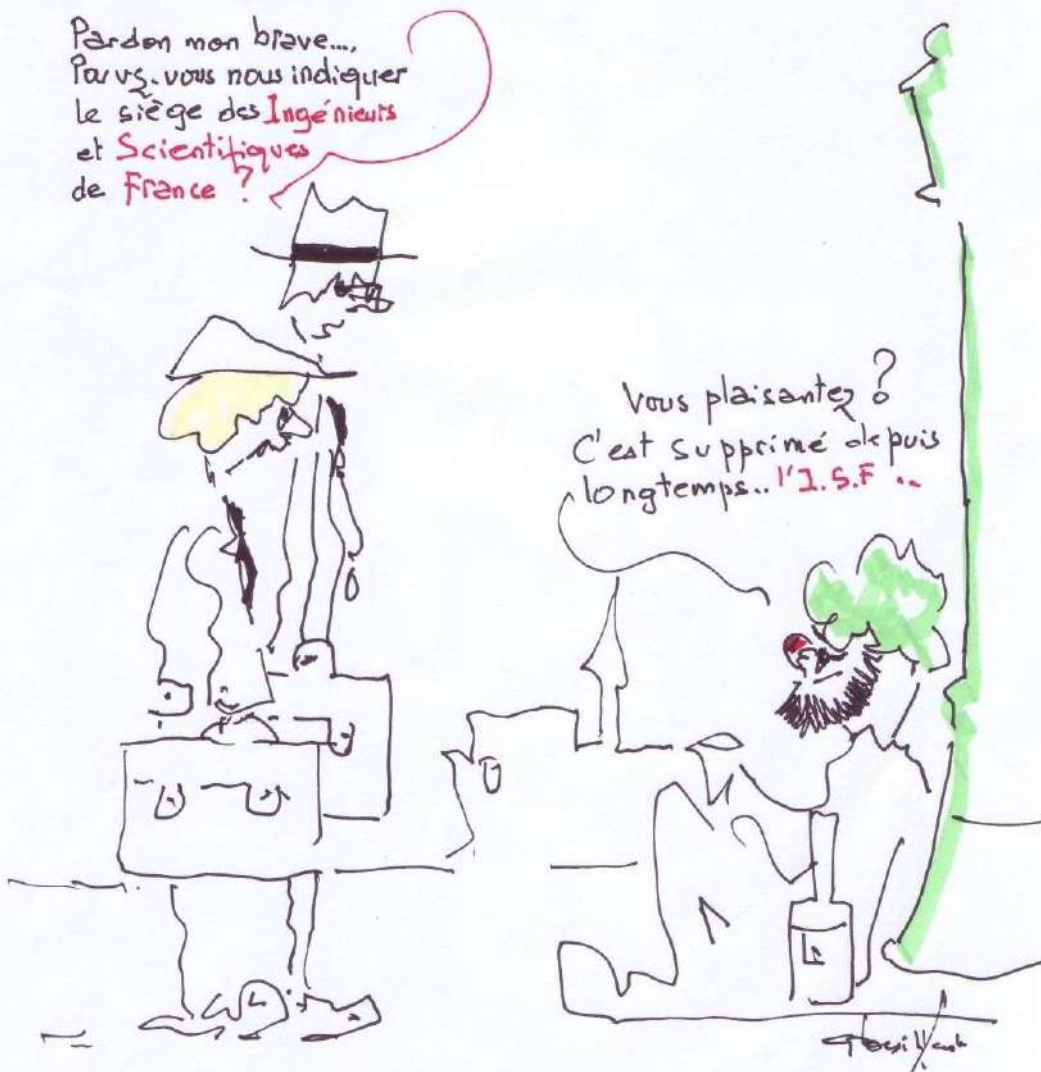 Pardon mon brave...,
Pouvz-vous nous indiquer
le siège des Ingénieurs
et Scientifiques
de France ?
Vous plaisantez ?
C'est supprimé depuis
longtemps.. l'I.S.F ..